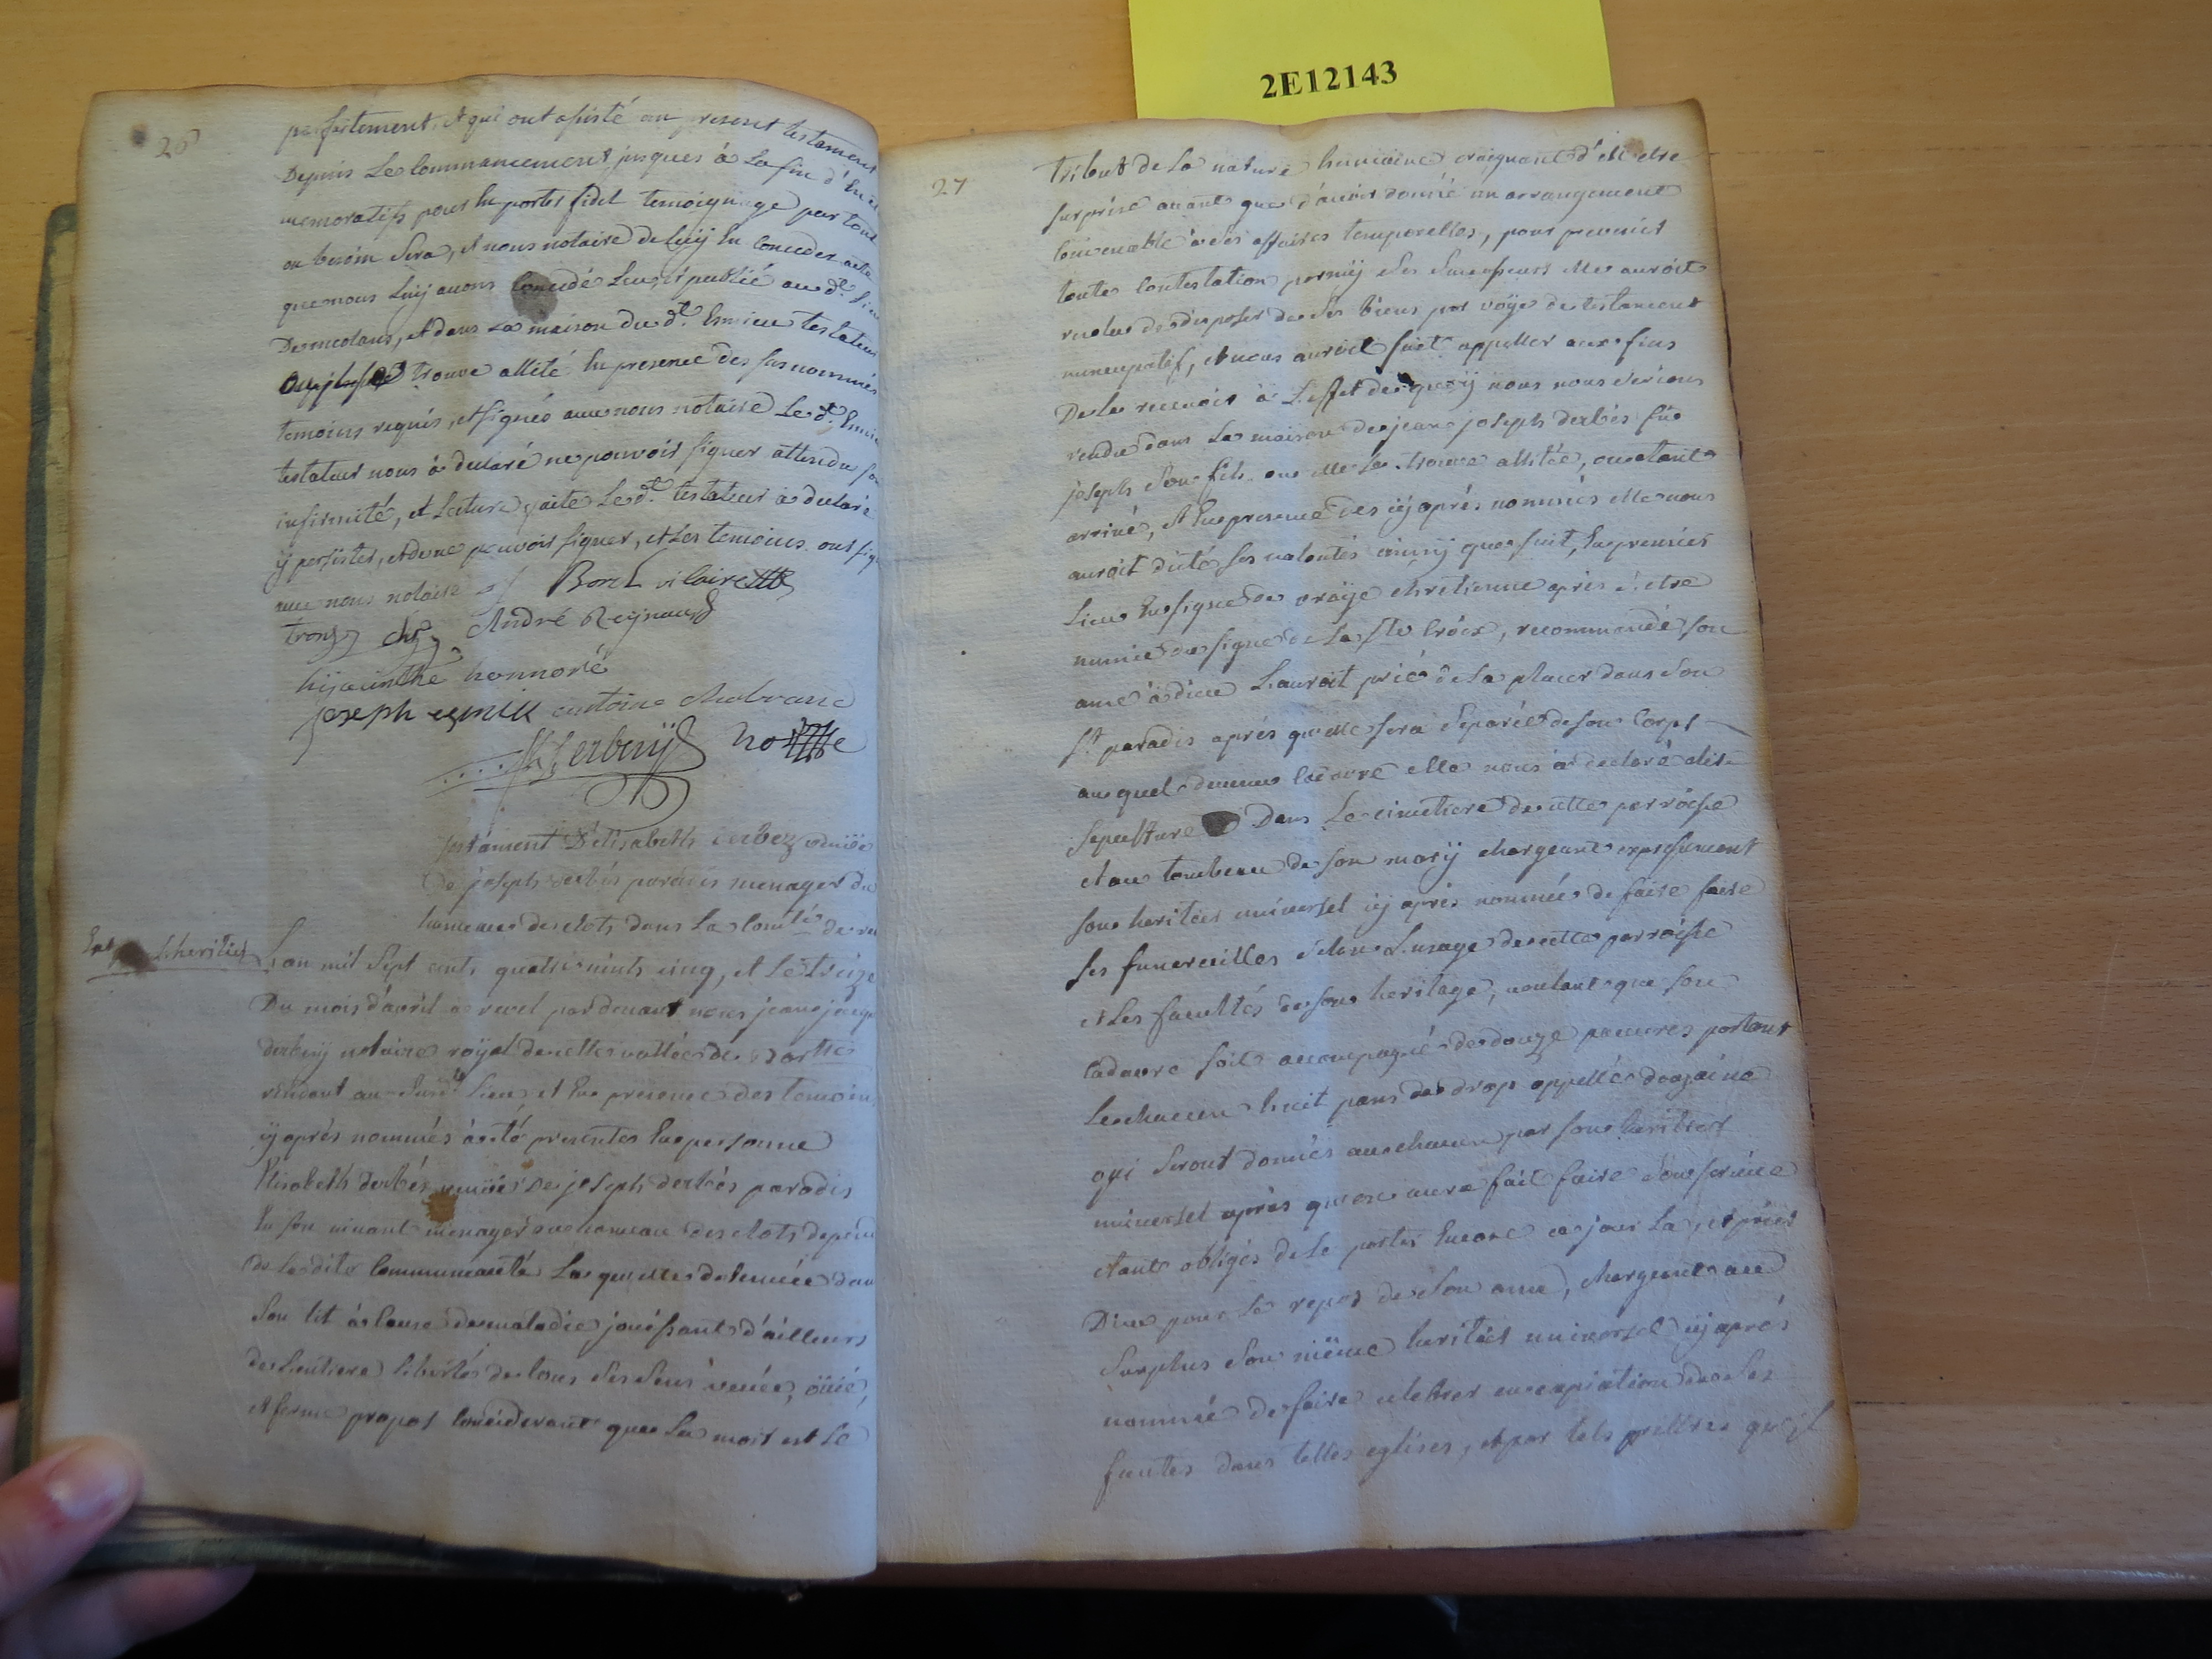 2E12143
26
parfaitement, et qui ont asisté au present testament
Depuis Le Commancement jusques à La fin d'En etre
memoratifs pour En porter fidel temoignage par tout
ou besoin Sera, et nous notaire de Luij En conceder acte
que nous Luij avons concedé Leu, et publié au dt. Lieu
De meolans, et dans La maison du dt. Emieu testateur
temoins requis, et signés avec nous notaire Le dt.
testateur nous à declaré ne pouvoir signer attendu son
infirmité, et Lecture faite Le dt. testateur à declaré
ij persister, et de ne pouvoir signer, et Les temoins ont
avec nous notaire
Borel vicaire
André Reijnaud
hijacinthe honnoré
joseph antoine
Derbeij
testament D'elisabeth derbez veuve
de joseph derbés paradis menager du
hameau des clots dans La Comté. de
L'heritier
L'an mil Sept cents quatre vints cinq, et Le treize
Du mois d'avril à revel par devant nous jean
derbeij notaire roijal de cette vallée de
rendant au susdt. Lieu, et En presence des temoins
ij après nommés à eté presentes En personne
Elisabeth derbés veuve de joseph derbés paradis
En son vivant menager du hameau des clots
de La dite Communeauté La quelle detenüe dans
Son lit à Cause de maladie joüissant d'ailleurs
de L'entiere Liberté de tous Ses Sens veüe, öüie,
et ferme propos Considerant que La mort est Le
27
tribut de La nature humaine craignant d'En etre
surprise avant que d'avoir donné un arrangement
Convenable à Ses affaires temporelles, pour prevenir
toute Contestation parmij Ses Successeurs elle auroit
resolue de disposer de Ses biens par voije de testament
nuncupatif, et nous auroit fait appeller aux fins
De Le recevoir à L'effet de quoij nous nous Serions
rendu dans La maison de jean joseph derbés feu
joseph Son fils ou elle Se trouve allitée, ou etant
arrivé, et En presence des ij après nommés elle nous
auroit dicté Ses volontés ainsij que suit, En premier
Lieu En signe de vraije chretienne après S'etre
munie du signe de La Ste Croix, recommandé son
ame à dieu L'auroit prié de La placer dans Son
St. paradis après qu'elle sera Separée de son Corps
au quel devenu Cadavre elle nous à declaré elire
Sepulture Dans Le cimetiere de cette parroisse
et au tombeau de son marij chargeant expressement
son heritier universel ij après nommé de faire faire
ses funerailles Selon L'usage de cette parroisse
et Les facultés de son heritage, voulant que son
Cadavre soit accompagné de douze pauvres portant
Le chacun huit pans de drap appellé
qui Seront donnés au chacun par son heritier
universel après qu'on aura fait faire Son service
etant obligés de Le porter Encore ce jour La, et prier
Dieu pour Le repos de Son ame, chargeant au
Surplus Son même heritier universel ij après
nommé de faire celebrer en expiation de Ses
fautes dans telles eglises, et par tels prettres qu'il